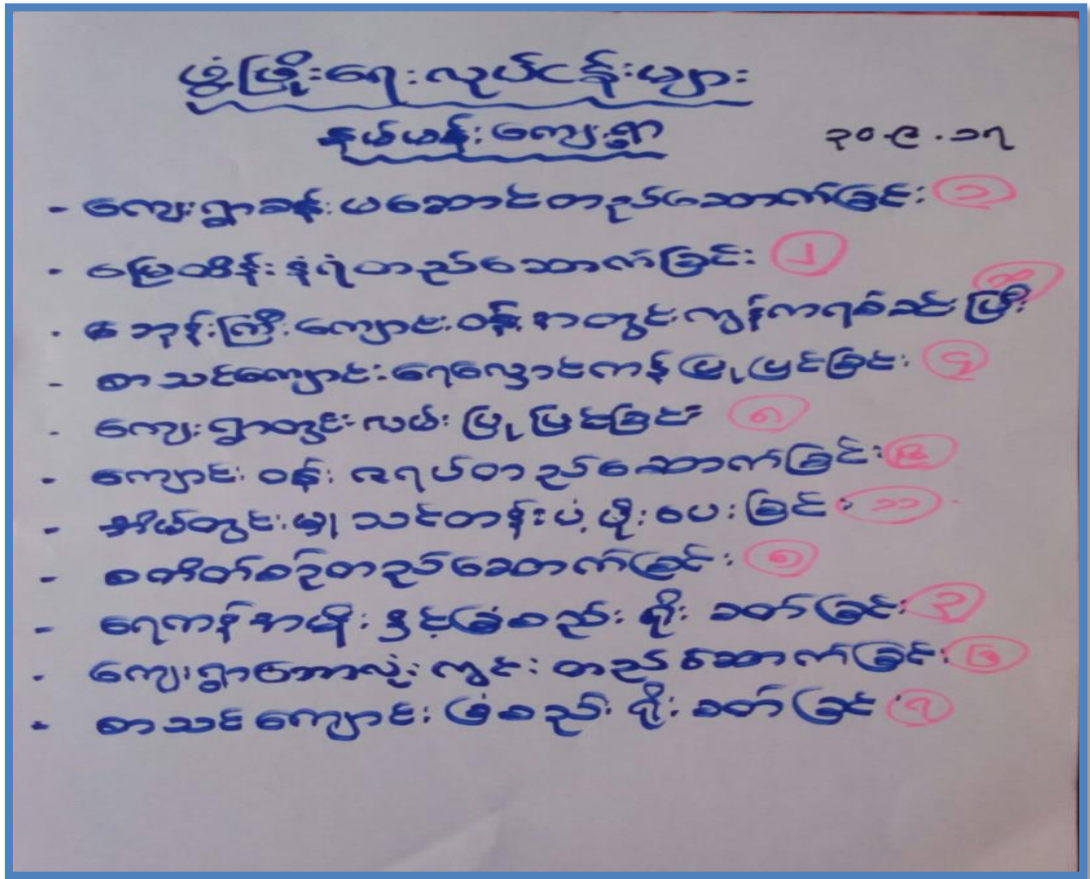 ဖွံ့ဖြိုးရေးလုပ်ငန်းများ
နယ်ယန်းကျေးရွာ ၃၀.၉.၁၇
- ကျေးရွာခန်းမဆောင်တည်ဆောက်ခြင်း ၁
- မြေထိန်းနံရံတည်ဆောက်ခြင်း ၂
- ဘုန်းကြီးကျောင်းဝန်းအတွင်းကွန်ကရစ်ခင်းပြီး
- စာသင်ကျောင်းရေလှောင်ကန်ပြုပြင်ခြင်း ၄
- ကျေးရွာတွင်းလမ်းပြုပြင်ခြင်း ၈
- ကျောင်းဝန်းဇရပ်တည်ဆောက်ခြင်း
- အိမ်တွင်းမှုသင်တန်းပံ့ပိုးပေးခြင်း ၁၁
- စတိတ်စဉ်တည်ဆောက်ခြင်း ၅
- ရေကန်အမိုးနှင့်ခြံစည်းရိုးခတ်ခြင်း ၃
- ကျေးရွာဘောလုံးကွင်းတည်ဆောက်ခြင်း
- စာသင်ကျောင်းခြံစည်းရိုးခတ်ခြင်း ၇